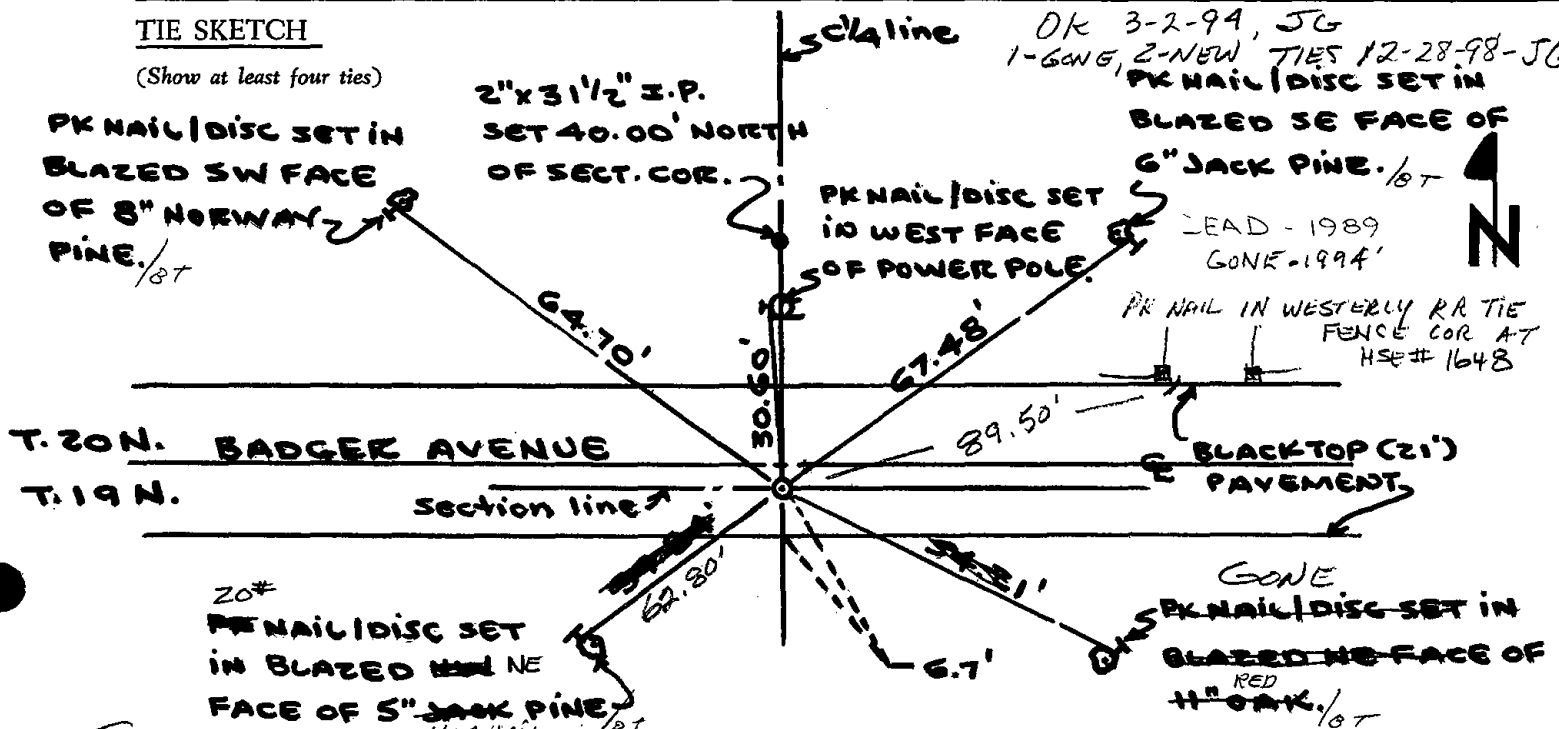 TIE SKETCH
(Show at least four ties)
C¼ line
OK 3-2-94, JG
1-GONE, 2-NEW TIES 12-28-98-JG
PK NAIL/DISC SET IN
BLAZED SW FACE
OF 8" NORWAY
PINE./BT
2"x 31½" I.P.
SET 40.00' NORTH
OF SECT. COR.
PK NAIL/DISC SET
IN WEST FACE
OF POWER POLE.
PK NAIL/DISC SET IN
BLAZED SE FACE OF
6" JACK PINE./BT
DEAD - 1989
GONE - 1994'
N
PK NAIL IN WESTERLY RR TIE
FENCE COR AT
HSE# 1648
64.70'
30.60'
67.48'
89.50'
T. 20 N. BADGER AVENUE
T. 19 N.
section line
BLACKTOP (21')
PAVEMENT
62.80'
54.21'
6.7'
20#
PK NAIL/DISC SET
IN BLAZED NE
FACE OF 5" JACK PINE
/BT
GONE
PK NAIL/DISC SET IN
BLAZED NE FACE OF
RED
11" OAK./BT